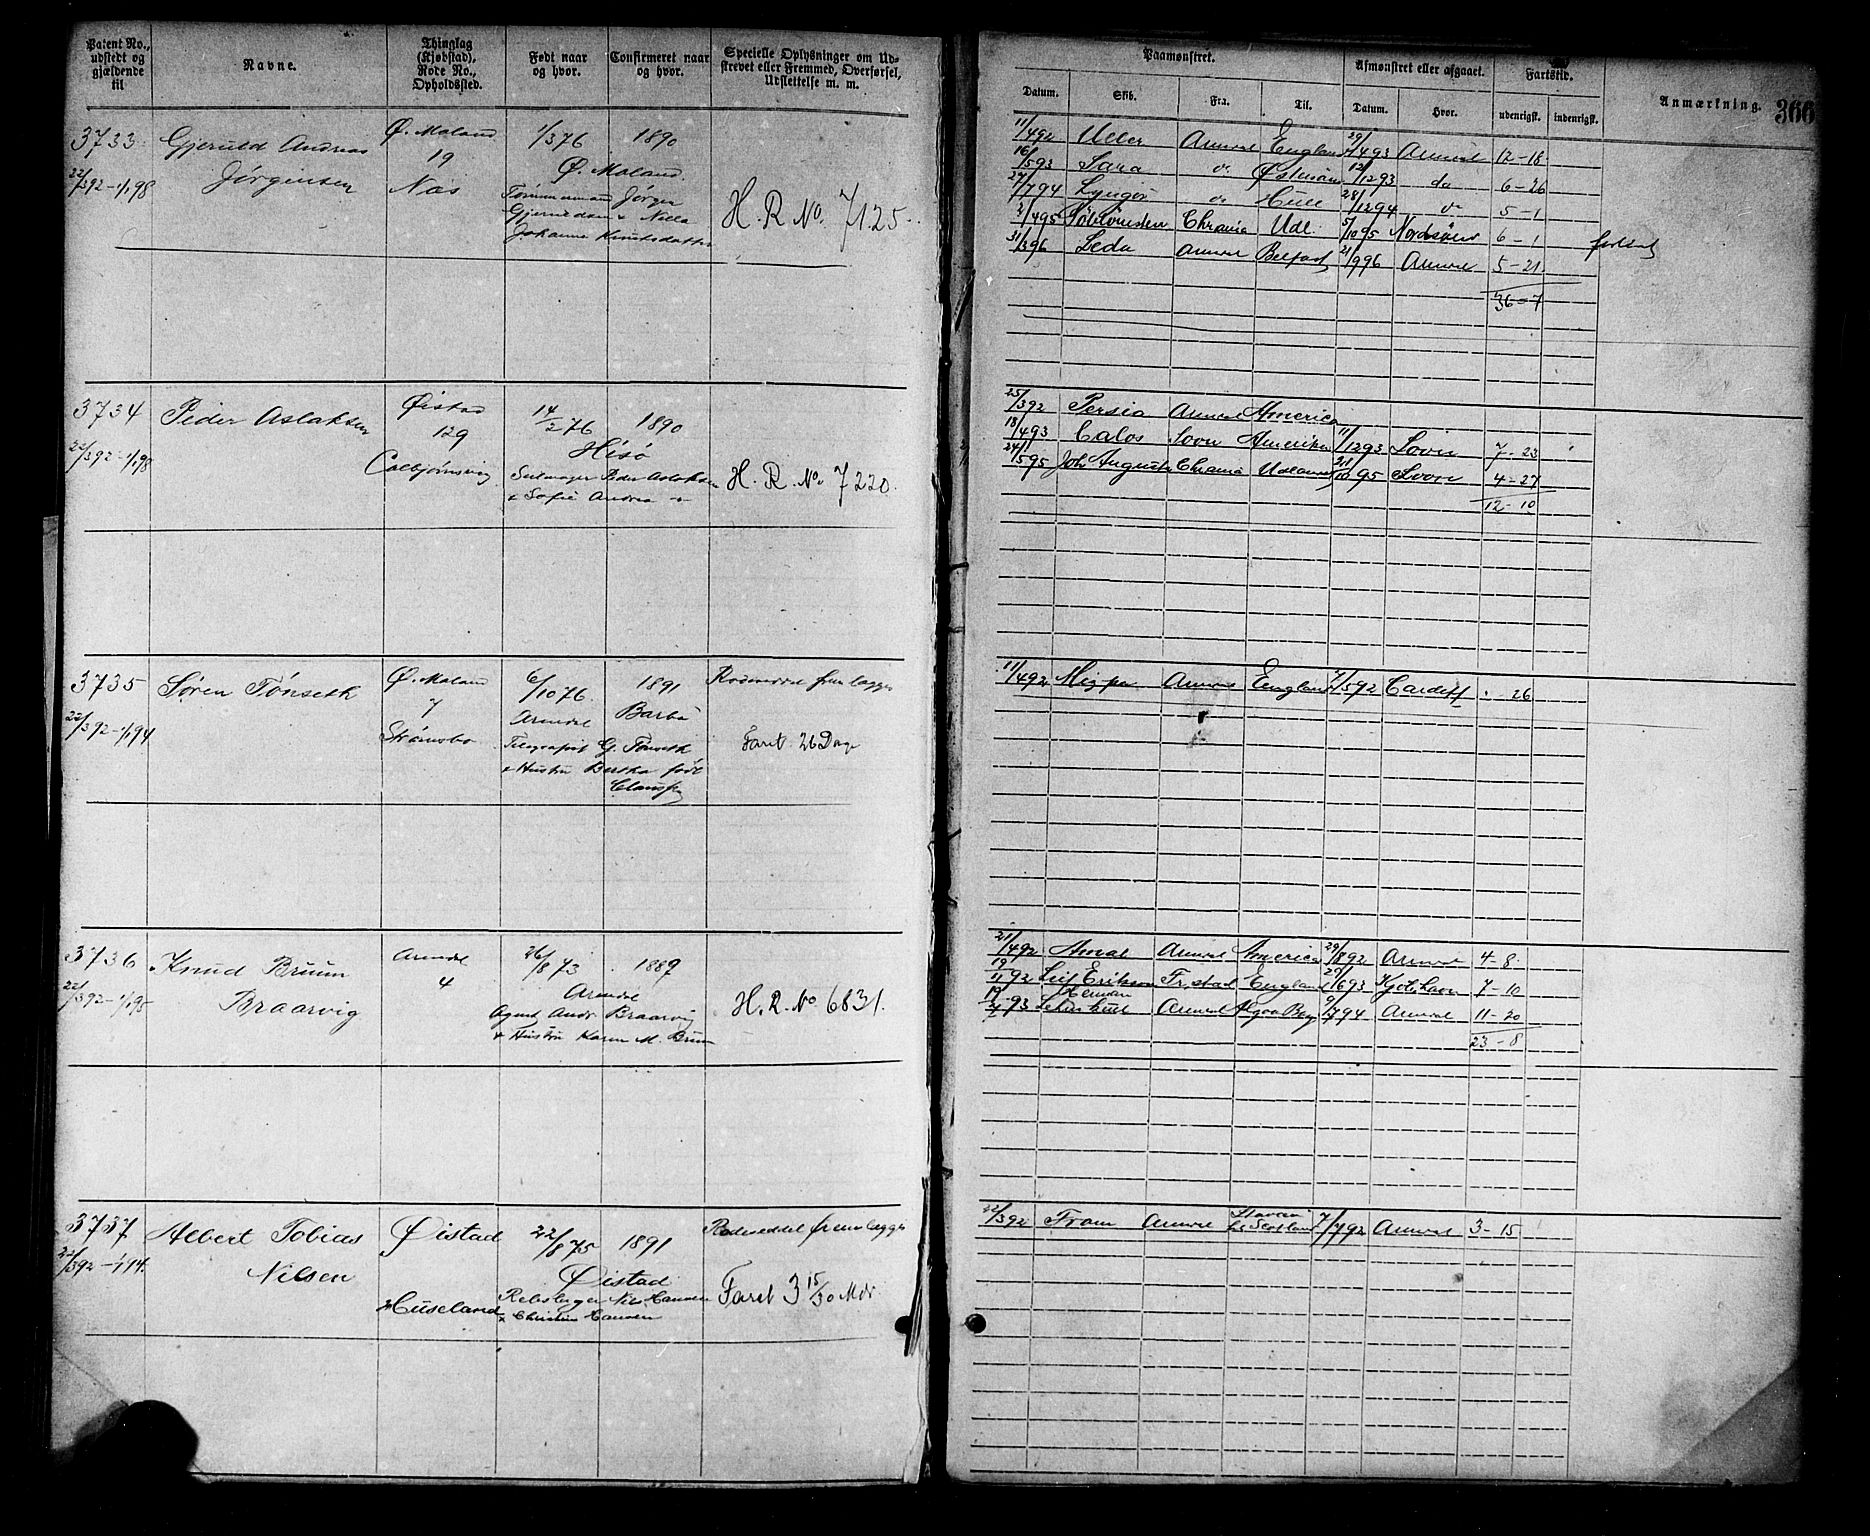 Patent No., udstedt og gjældende til
Navne.
Thinglag (Kjøbstad), Rode No., Opholdssted.
Født naar og hvor.
Confirmeret naar og hvor.
Specielle Oplysninger om Udskrevet eller Fremmed, Overførsel, Udslettelse m. m.
Paamønstret.
Afmønstret eller afgaaet.
Fartstid.
Anmærkning.
366
Datum.
Skib.
Fra.
Til.
Datum.
Hvor.
udenrigsk.
indenrigsk.
3733
Gjeruld Andreas
Ø. Moland
1/3 76
1890
22/3 92-1/1 98
Jørgensen
19
Ø. Moland
Næs
Tømmermand Jørgen
Gjeruldsen & Nilla
Johanne Knutsdatter
H. R. No. 7125.
11/4 92 Uller Arendal England 29/4 93 Arendal 12-18
16/5 93 Sara do Østersøen 12/12 93 do 6-26
27/7 94 Lyngør do Hull 28/12 94 do 5-1
2/4 95 Chrania Udl. 5/10 95 6-1 forlist
31/3 96 Leda Arendal Belfast 21/9 96 Arendal 5-21
36-7
3734
Peder Aslaksen
Øistad
14/2 76
1890
22/3 92-1/1 98
129
Hisø
Colbjørnsvig
Seilmager Peder Aslaksen
& Sofie Andrea
H. R. No 7220.
25/3 92 Persia Arendal America
18/4 93 Calos Sovn Amerika 11/12 93 Sovn 7-23
24/5 95 Joh. Augusta Chrania Udlandet 21/10 95 Sovn 4-27
12-10
3735
Søren Tønseth
Ø. Moland
6/10 76
1891
Rodeseddel fremlagges
22/3 92-1/1 94
7
Arendal
Barbo
Strømsbo
Telegrafist G. Tønseth
& Hustru Bertha født
Clausen
Faret 26 Dage
11/4 92 Mizpa Arendal England 7/5 92 Cardiff - 26
3736
Knud Bruun
Arendal
26/8 73
1889
22/3 92-1/1 95
Braarvig
4
Arendal
Agent Andr Braarvig
& Hustru Karen M. Bruun
H. R. No 6831.
21/4 92 Amal Arendal America 29/8 92 Arendal 4-8
19/11 92 Leif Erikson Fr.stad England 29/6 93 Kjøbhavn 7-10
93 Herman Lehmkuhl Arendal Algoa Bay 9/7 94 Arendal 11-20
23-8
3737
Albert Tobias
Øistad
22/8 75
1891
Rodeseddel fremlagges
22/3 92-1/1 94.
Nilsen
Øistad
Huseland
Rebslager Nils Hansen
& Christine Hansen
Faret 3 15/30 Mdr
22/3 92 Fram Arendal Scotland 7/7 92 Arendal 3-15